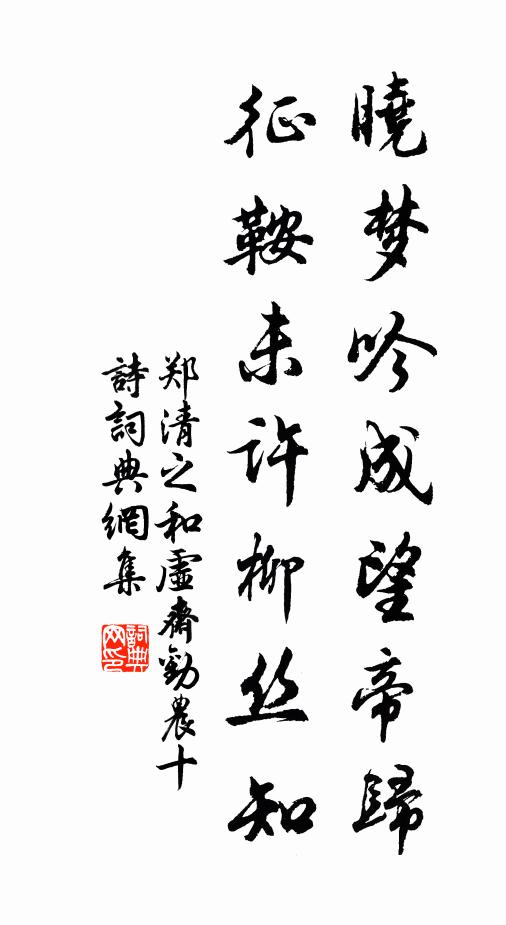 曉梦吟成望帝歸
征鞍未许柳丝知
郑清之和虛齋勸農十
詩詞典網集
詞典网印